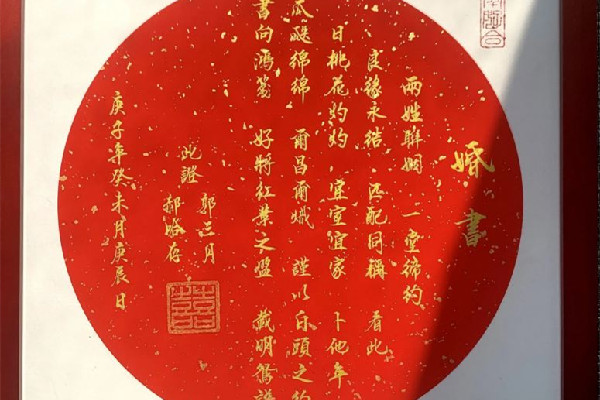 婚書
兩姓聯姻 一堂締約
良緣永結 匹配同稱 看此
日桃花灼灼 宜室宜家 卜他年
瓜瓞綿綿 爾昌爾熾 謹以白頭之約
書向鴻箋 好將紅葉之盟 載明鴛譜
此證
郭 月
郝 存
庚子年癸未月庚辰日
囍